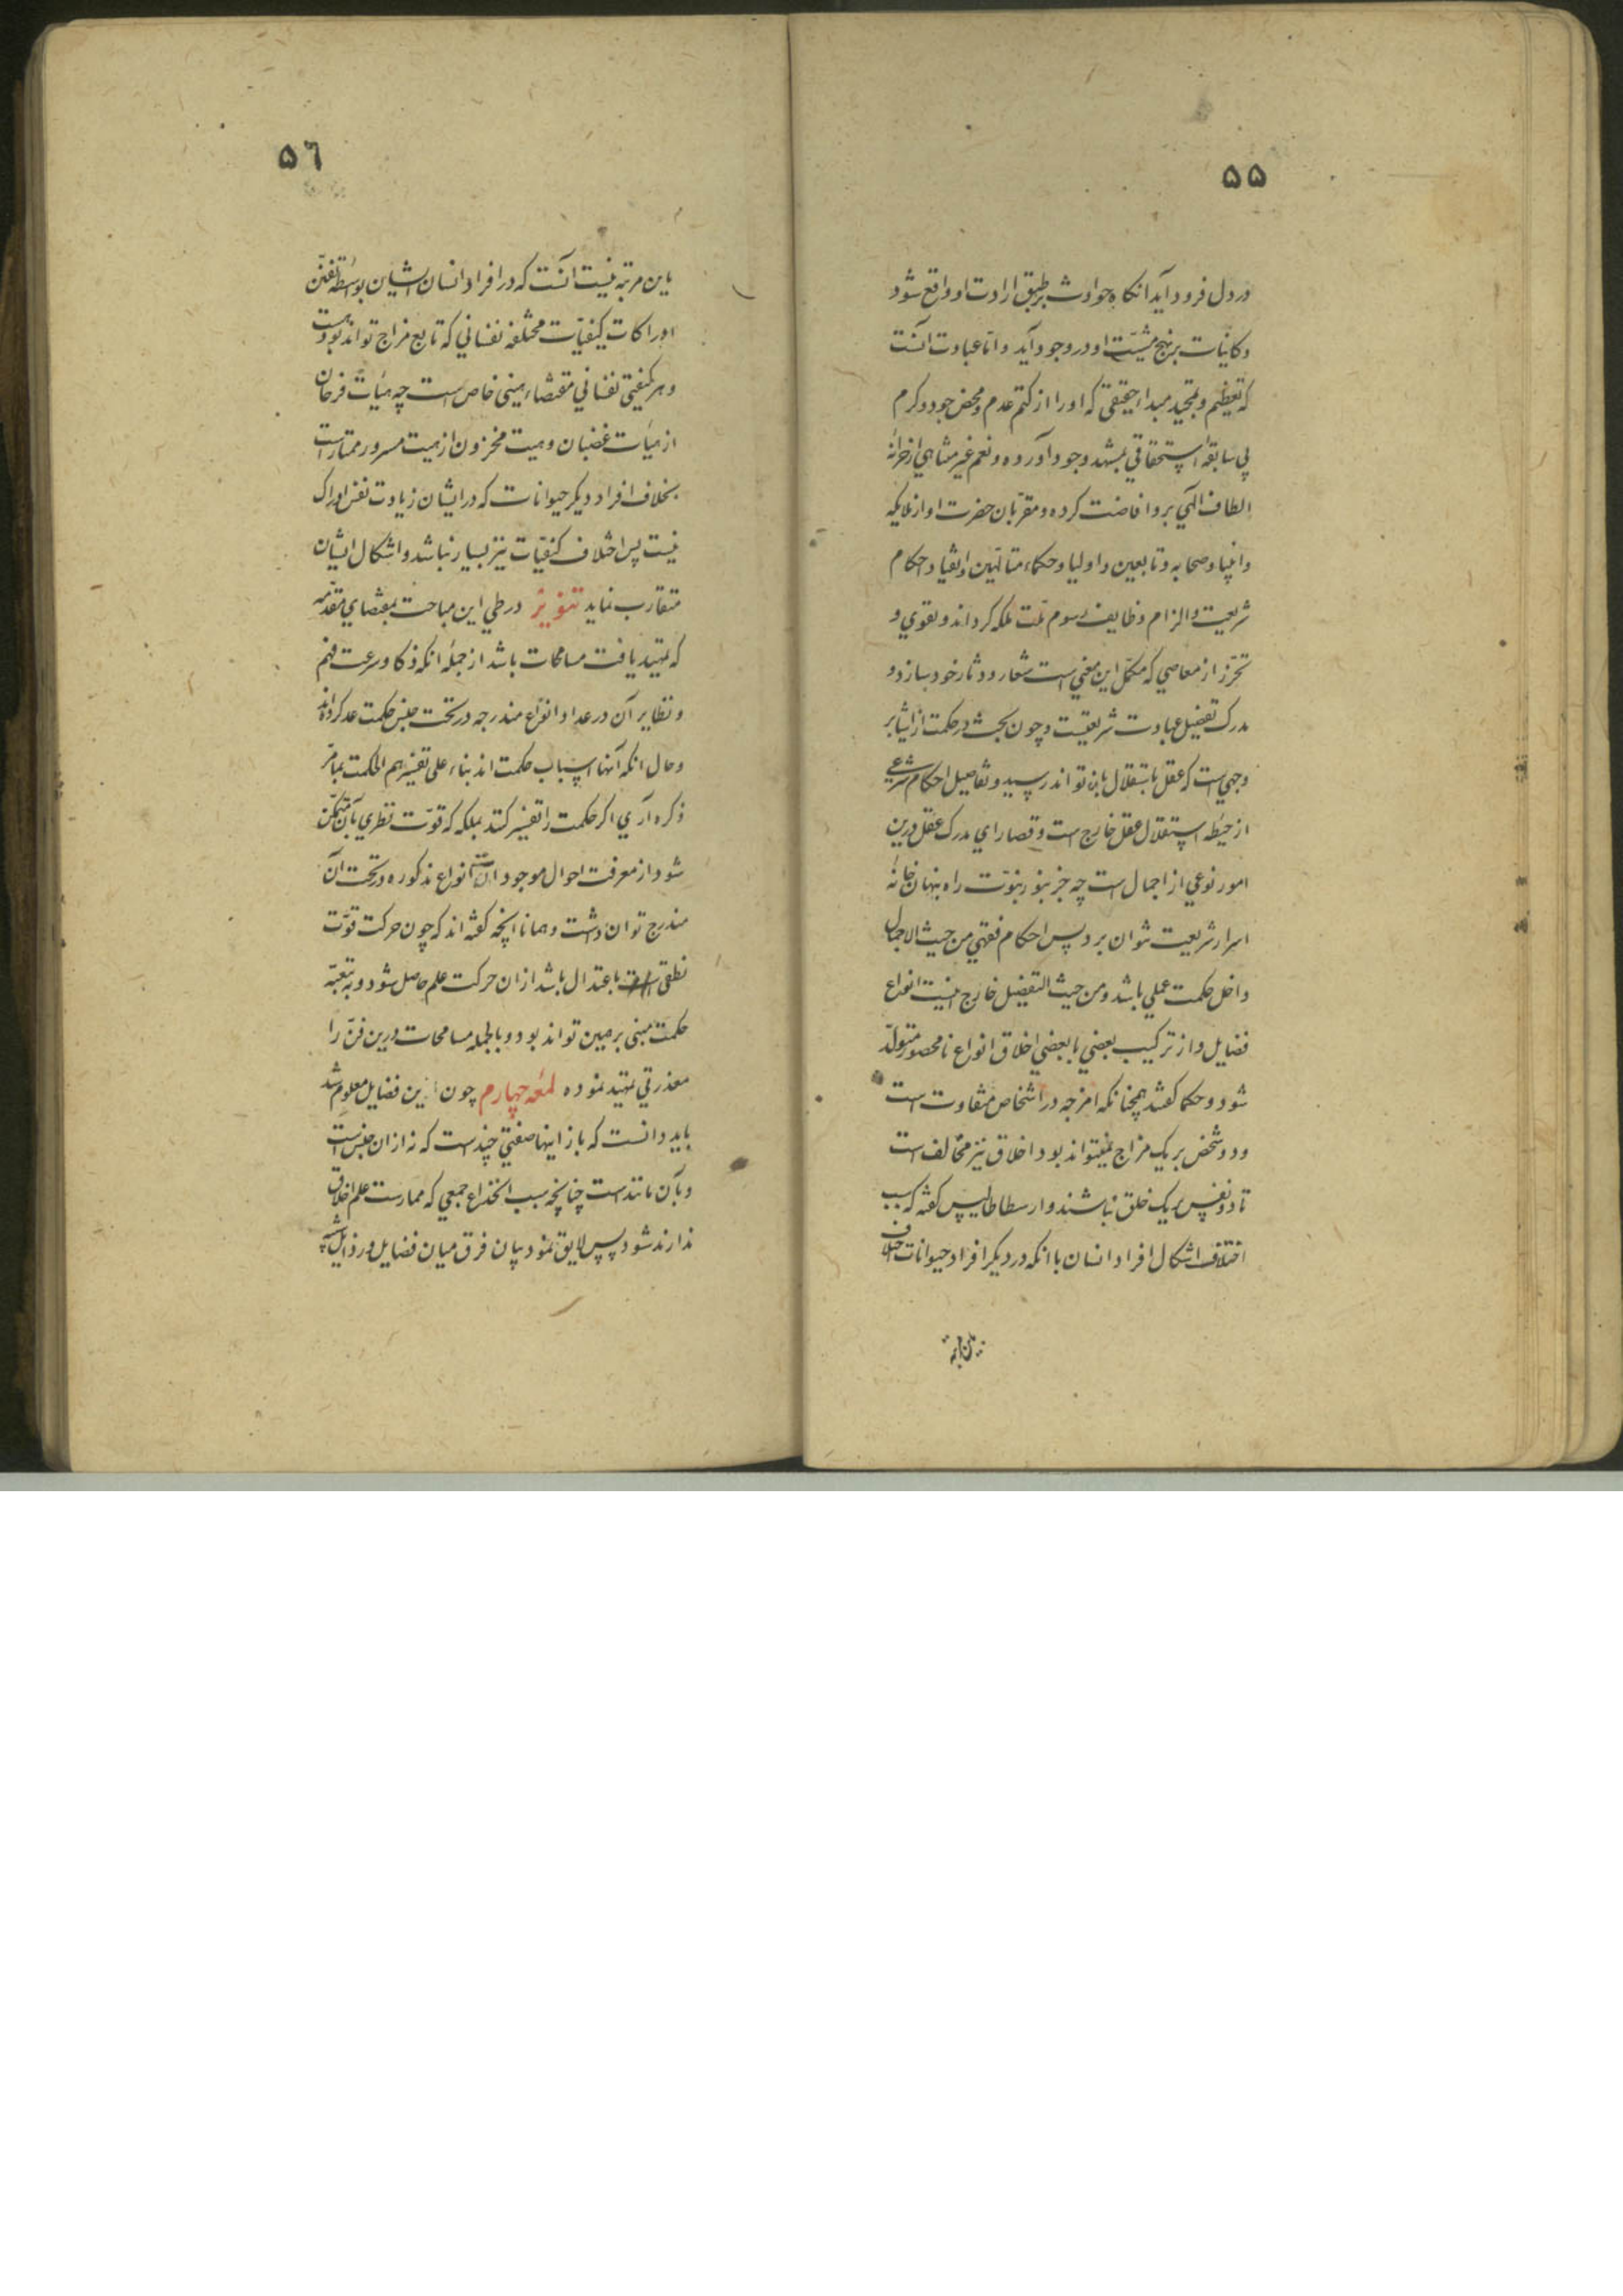 ۵۵
در دل فرود آید آنکاه حوادث بر طبق ارادت او واقع شود
و کاینات بر نهج مشیّت او در وجود آید و امّا عبادت آنست
که تعظیم و تمجید مبداء حقیقی که او را از کتم عدم و محض جود و کرم
بی سابقهٔ استحقاقی بمشهد وجود آورده و نعم غیر متناهی از خزانهٔ
الطاف الهی بر وافاضت کرده و مقربان حضرت او از ملایکه
و انبیا و صحابه و تابعین و اولیا و حکماء متألهین و انقیاد احکام
شریعت و الزام وظایف رسوم ملّت ملکه کرداند و تقوی و
تحرّز از معاصی که مکمّل این معنی است شعار و دثار خود سازد و
مدرک تفصیل عبادت شریعتست و چون بحث در حکمت از اشیا بر
وجهی است که عقل باستقلال بان تواند رسید و تفاصیل احکام شرعی
از حیطهٔ استقلال عقل خارج است و قصارای مدرک عقل درین
امور نوعی از اجمال است چه جز بنور نبوّت راه بنهان خانهٔ
اسرار شریعت نتوان برد پس احکام فقهی من حیث الاجمال
داخل حکمت عملی باشد و من حیث التفصیل خارج اینست انواع
فضایل و از ترکیب بعضی با بعضی اخلاق انواع نامحصور متولّد
شود و حکما کفته‌اند همچنانکه امزجه در اشخاص متفاوت است
و دو شخص بر یک مزاج نمیتواند بود اخلاق نیز مخالف است
تا دو نفس بر یک خلق نباشند و ارسطاطالیس کفته که سبب
اختلاف اشکال افراد انسان با انکه در دیکر افراد حیوانات اختلاف
۵٦
باین مرتبه نیست آنست که در افراد انسان ایشان بواسطهٔ تفنّن
ادراکات کیفیّات مختلفه نفسانی که تابع مزاج تواند بود هست
و هر کیفیتی نفسانی مقتضاء هیئتی خاص است چه هیأت فرحان
از هیأت غضبان و هیت محزون از هیت مسرور ممتاز است
بخلاف افراد دیکر حیوانات که در ایشان زیادت تفنن ادراک
نیست پس اختلاف کیفیّات نیز بسیار نباشد و اشکال ایشان
متقارب نماید تنویرٌ در طی این مباحث بمقتضای مقدّمه
که تمهید یافت مسامحات باشد از جمله انکه ذکا و سرعت فهم
و نظایر آن در عداد انواع مندرجه در تحت جنس حکمت عد کرده‌اند
و حال انکه آنها اسباب حکمت اند بناء علی تفسیرهم الحکمت بما مرّ
ذکره آری اکر حکمت را تفسیر کنند بملکه که قوّت نظری بآن متمکّن
شود از معرفت احوال موجودات انواع مذکوره در تحت آن
مندرج توان داشت و همانا انچه کفته اند که چون حرکت قوّت
نطقی باعتدال باشد از ان حرکت علم حاصل شود و به تبعیّه
حکمت مبنی بر همین تواند بود و بالجمله مسامحات درین فن را
معذرتی تمهید نموده لمعه چهارم چون ازین فضایل معلوم شد
باید دانست که باز اینها صفتی چندست که نه از ان جنس است
و بآن مانندست چنانچه سبب انخداع جمعی که ممارست علم اخلاق
ندارند شود پس لایق نمود بیان فرق میان فضایل و رذایل شبیه